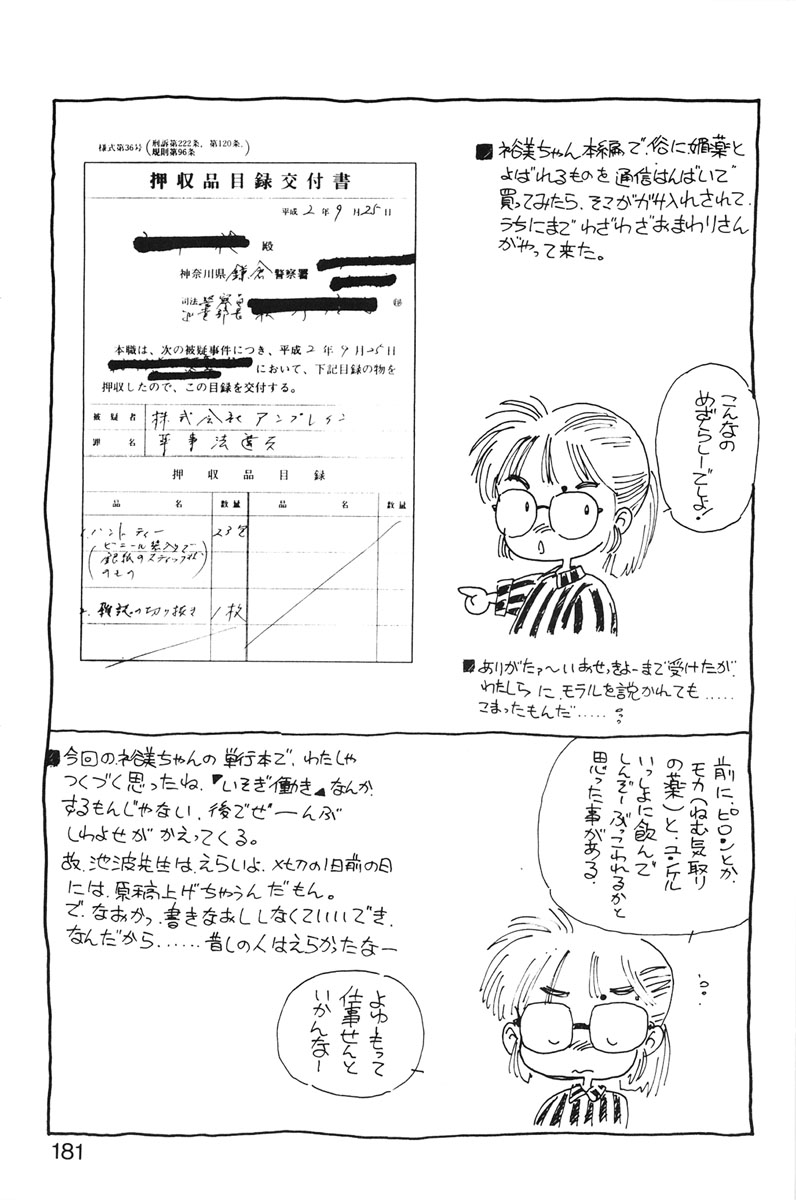 ■裕美ちゃん本編で、俗に媚薬と
よばれるものを通信はんばいで
買ってみたら、そこがガサ入れされて、
うちにまでわざわざおまわりさん
がやって来た。
様式第36号(刑訴第222条、第120条、
規則第96条)
押収品目録交付書
平成2年9月25日
殿
神奈川県鎌倉警察署
司法警察員
本職は、次の被疑事件につき、平成2年9月25日
において、下記目録の物を
押収したので、この目録を交付する。
被疑者 株式会社アンブレイン
罪名 薬事法違反
押収品目録
品名 数量 品名 数量
1.ハントティー 23包
(ビニール袋入り
銀紙のスティック状
のもの)
2.雑誌の切り抜き 1枚
こんなの
めずらしーでしょ!
■ありがたァ〜いおせっきょーまで受けたが、
わたしらに、モラルを説かれても.....
こまったもんだ.....
前に、ピロンとか、
モカ(ねむ気取り
の薬)と、ユンケル
いっしょに飲んで
しんぞーぶっこわれるかと
思った事がある。
■今回の裕美ちゃんの単行本で、わたしゃ
つくづく思ったね、『いそぎ働き』なんか、
するもんじゃない、後でぜーんぶ
しわよせがかえってくる。
故、池波先生は、えらいよ、〆切の1日前の日
には、原稿上げちゃうんだもん。
で、なおかつ、書きなおししなくていいでき、
なんだから、......昔しの人はえらかったなー
よゆもって
仕事せんと
いかんなー
181